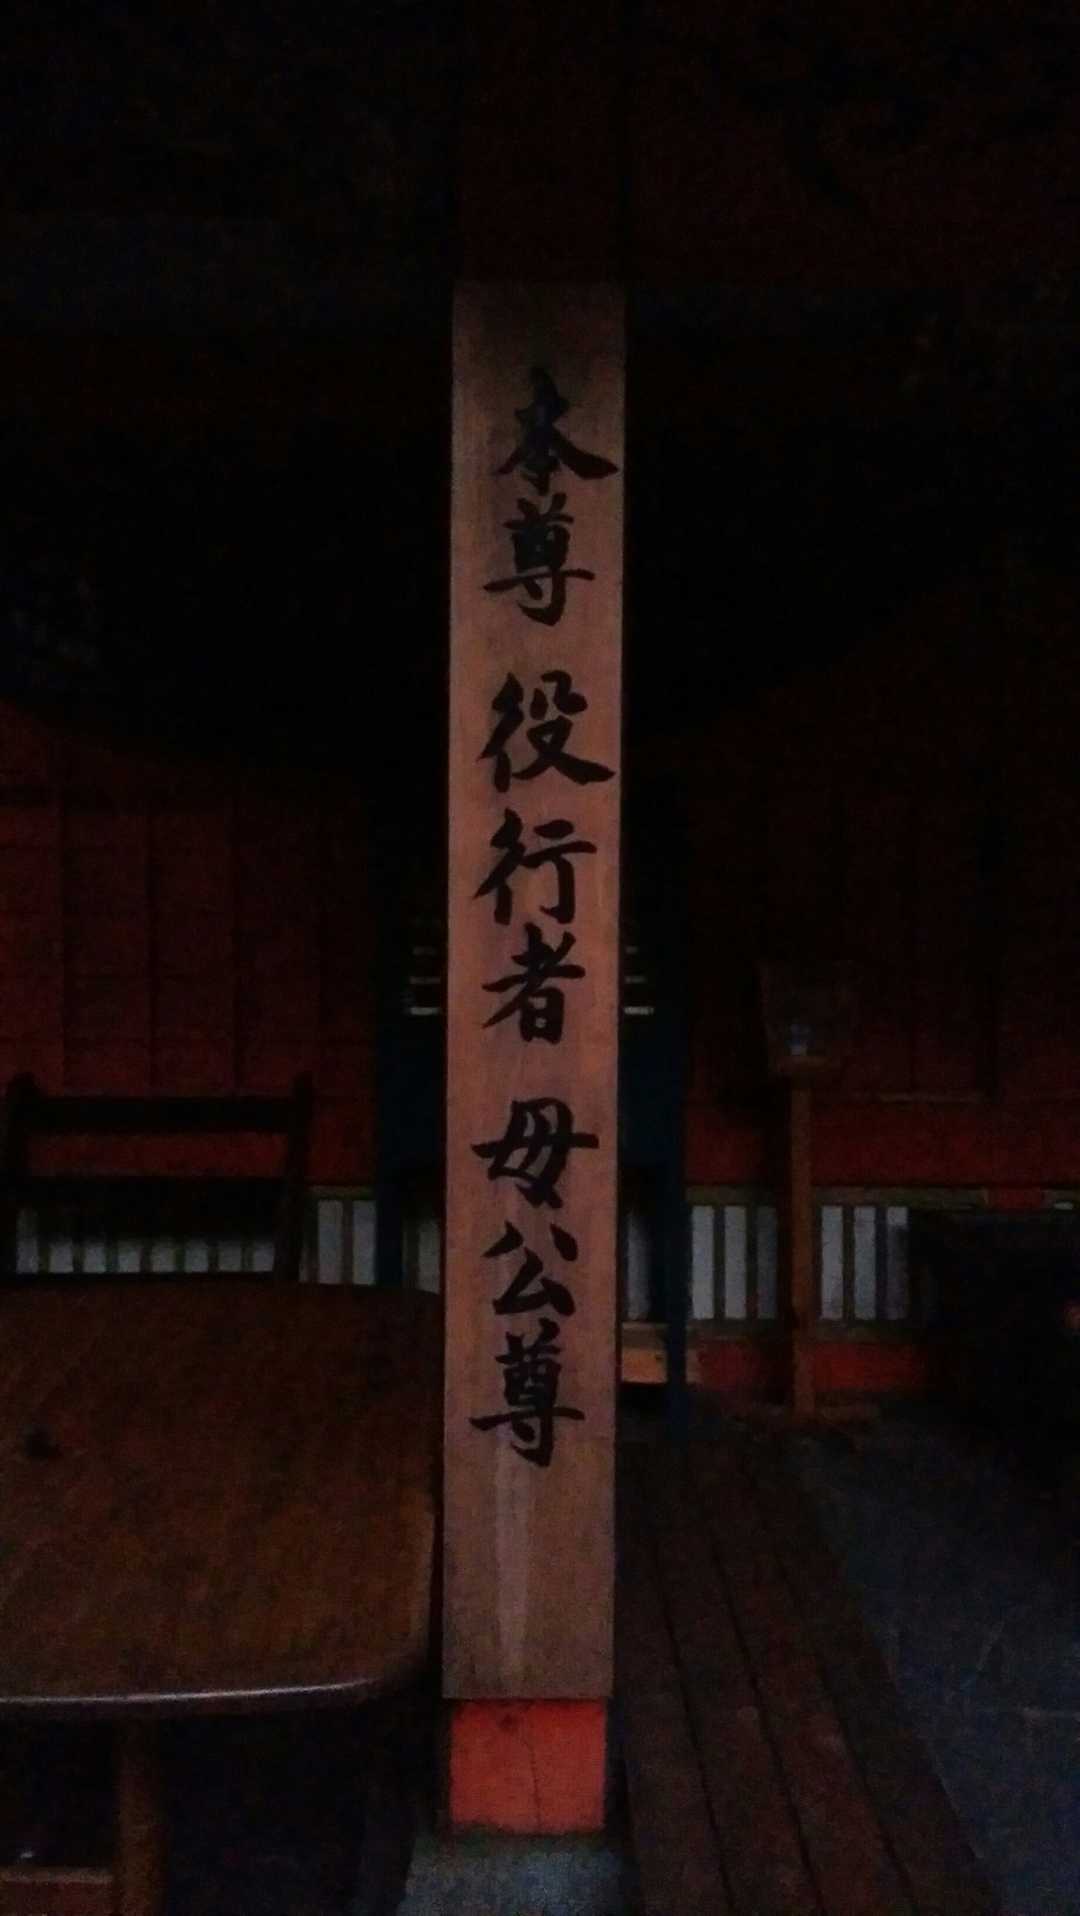 本尊 役行者 母公尊